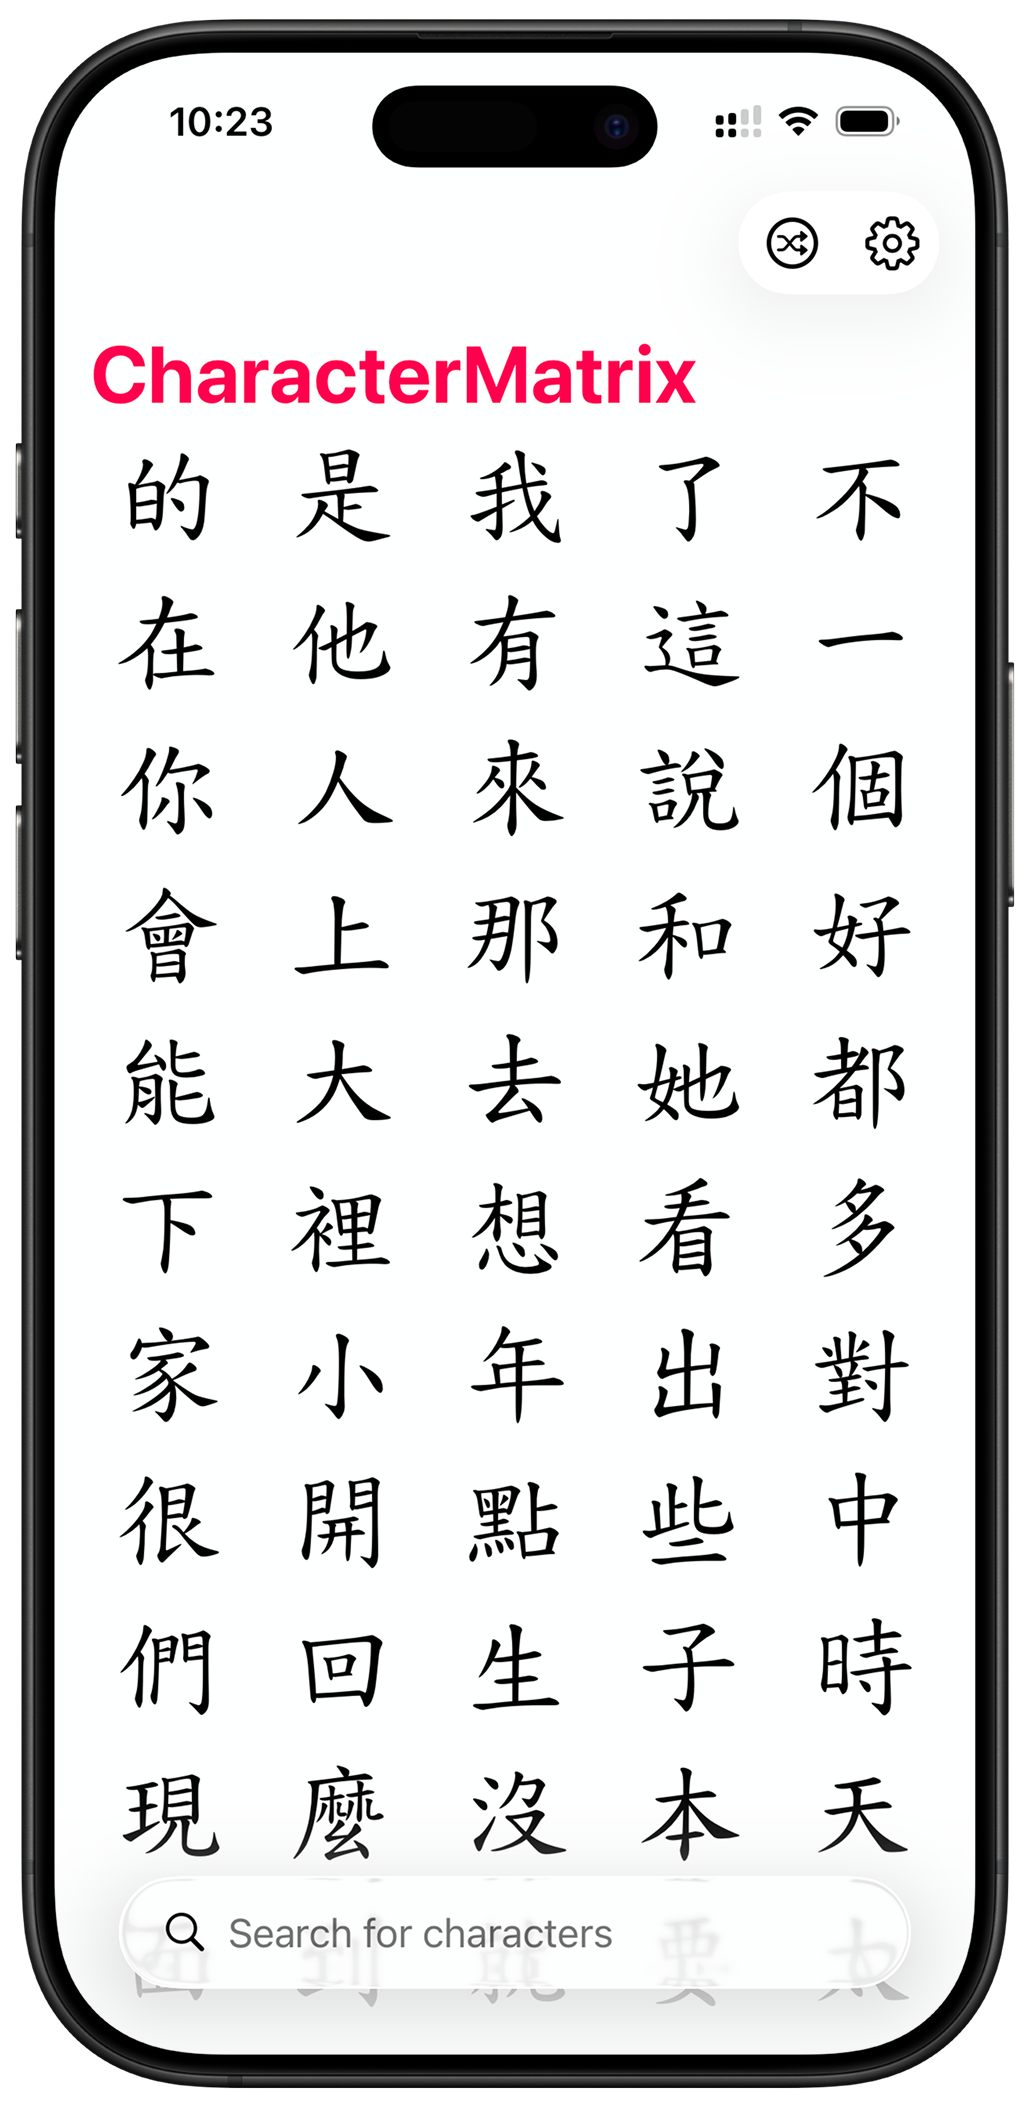 10:23
CharacterMatrix
的 是 我 了 不
在 他 有 這 一
你 人 來 說 個
會 上 那 和 好
能 大 去 她 都
下 裡 想 看 多
家 小 年 出 對
很 開 點 些 中
們 回 生 子 時
現 麼 沒 本 天
Search for characters
面 到 就 要 太